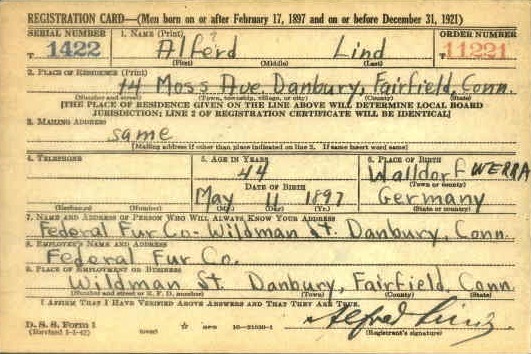 REGISTRATION CARD—(Men born on or after February 17, 1897 and on or before December 31, 1921)
SERIAL NUMBER 1. NAME (Print) ORDER NUMBER
T 1422 Alferd Lind T 11221
(First) (Middle) (Last)
2. PLACE OF RESIDENCE (Print)
14 Moss Ave. Danbury, Fairfield, Conn.
(Number and street) (Town, township, village, or city) (County) (State)
[THE PLACE OF RESIDENCE GIVEN ON THE LINE ABOVE WILL DETERMINE LOCAL BOARD
JURISDICTION; LINE 2 OF REGISTRATION CERTIFICATE WILL BE IDENTICAL]
3. MAILING ADDRESS
same
[Mailing address if other than place indicated on line 2. If same insert word same]
4. TELEPHONE 5. AGE IN YEARS 6. PLACE OF BIRTH
44 Walldorf WERRA
DATE OF BIRTH (Town or county)
May 11 1897 Germany
(Exchange) (Number) (Mo.) (Day) (Yr.) (State or country)
7. NAME AND ADDRESS OF PERSON WHO WILL ALWAYS KNOW YOUR ADDRESS
Federal Fur Co. Wildman St. Danbury, Conn.
8. EMPLOYER'S NAME AND ADDRESS
Federal Fur Co.
9. PLACE OF EMPLOYMENT OR BUSINESS
Wildman St. Danbury, Fairfield, Conn
(Number and street or R. F. D. number) (Town) (County) (State)
I AFFIRM THAT I HAVE VERIFIED ABOVE ANSWERS AND THAT THEY ARE TRUE.
D. S. S. Form 1
(Revised 1-2-42) (over) ☆ GPO 16-21630-1 Alfred Lind
(Registrant's signature)